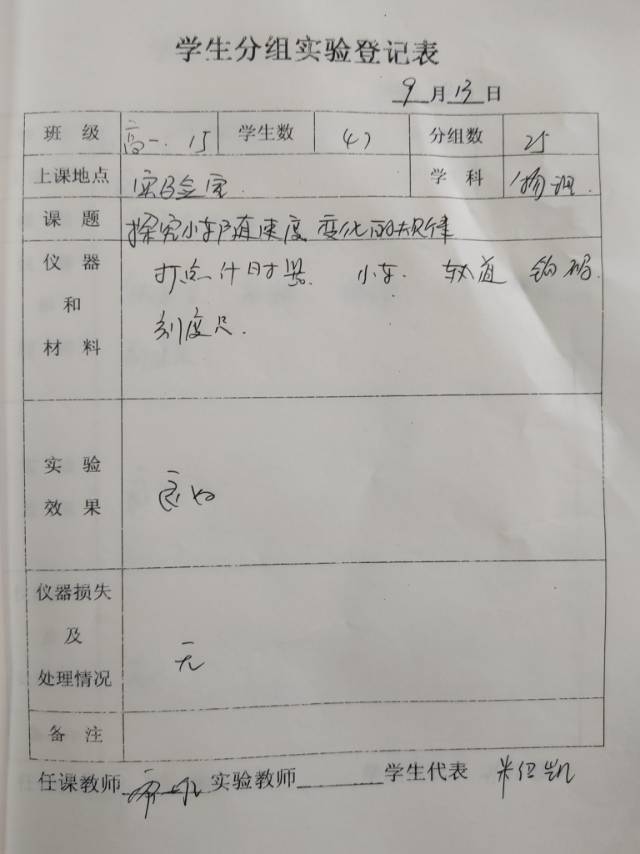 学生分组实验登记表
9月13日
班 级 高一.15 学生数 47 分组数 25
上课地点 实验室. 学 科 物理.
课 题 探究小车随速度变化的规律
仪 器 打点计时器. 小车. 轨道 钩码.
和 刻度尺.
材 料
实 验
效 果 良好
仪器损失
及
处理情况 无
备 注
任课教师 实验教师 学生代表